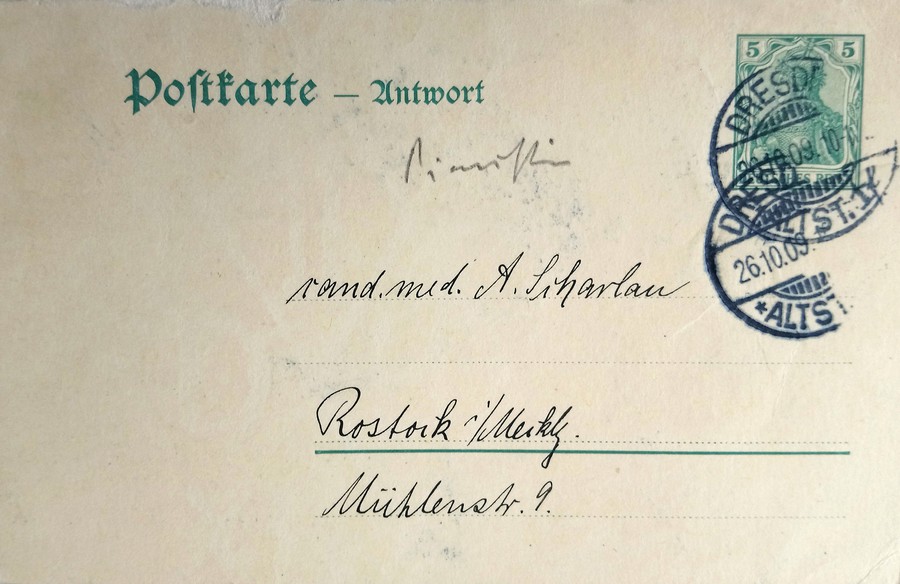 Postkarte — Antwort
5 5
DRESD
26.10.09. 10-11
ALTST. 1
DRESD
26.10.09.
*ALTST.
Pianistin
cand. med. A. Scharlau
Rostock i/Meckl.
Mühlenstr. 9.